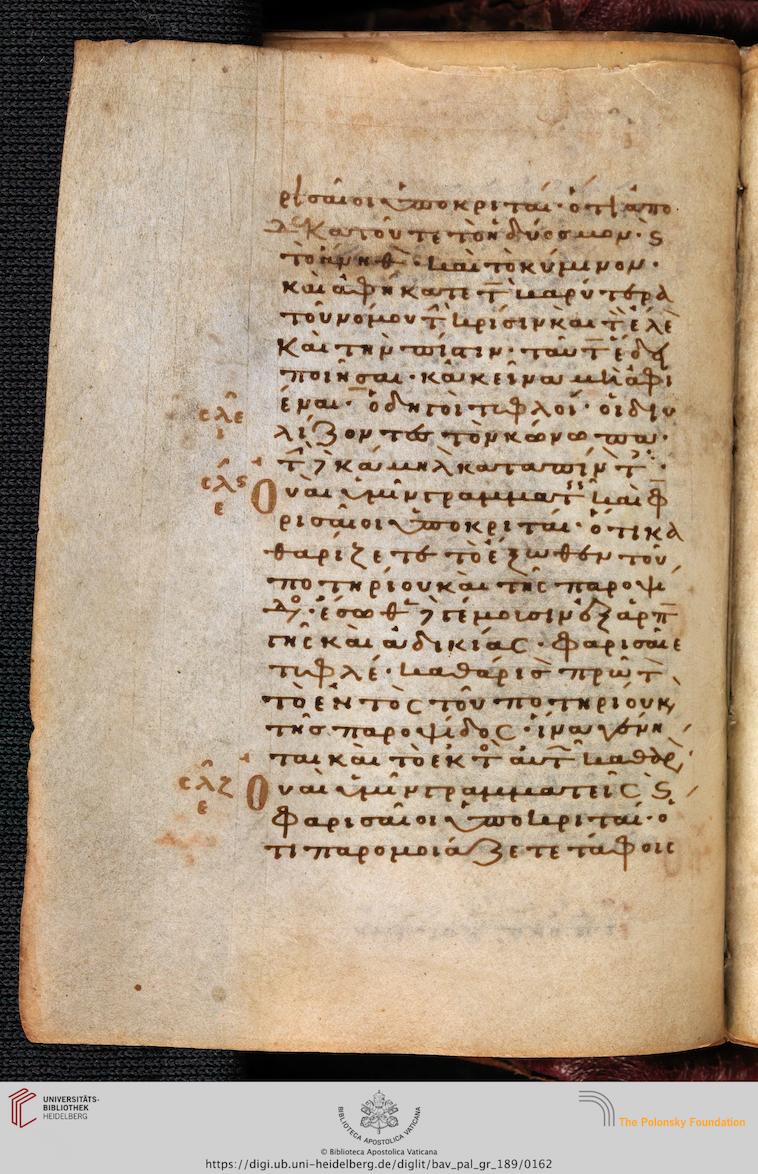 ρισαῖοι ὑποκριταί· ὅτι ἀπο
δεκατοῦτε τὸ ἡδύοσμον· ϗ
τὸ ἄνηθ · καὶ τὸ κύμινον·
καὶ ἀφήκατε τ̅ βαρύτερα
τοῦ νόμου τ̅ κρίσιν καὶ τ̅ ἔλε
καὶ τὴν πίστιν· ταῦτ ἔδει
ποιῆσαι· κἀκεῖνα μὴ ἀφι
έναι· ὁδηγοὶ τυφλοί· οἱ διυ
σλε
ι
λίζοντες τὸν κώνωπα·
τ̅ δὲ κάμηλ καταπίνοντ·
σλϛ
ε
Οὐαὶ ὑμῖν γραμματ καὶ φ
ρισαῖοι ὑποκριταί· ὅτι κα
θαρίζετε τὸ ἔξωθεν τοῦ
ποτηρίου καὶ τῆς παροψί
δο· ἔσωθ δὲ γέμουσιν ἐξ ἁρπ
γῆς καὶ ἀδικίας· φαρισαῖε
τυφλέ· καθάρισ πρῶτ
τὸ ἐντὸς τοῦ ποτηρίου κ
τῆς παροψίδος· ἵνα γένη
ται καὶ τὸ ἐκτὸ αὐτ καθαρ
σλζ
ε
Οὐαὶ ὑμῖν γραμματεῖς ϗ
φαρισαῖοι ὑποκριταί· ὅ
τι παρομοιάζετε τάφοις
UNIVERSITÄTS-
BIBLIOTHEK
HEIDELBERG
BIBLIOTECA APOSTOLICA VATICANA
The Polonsky Foundation
© Biblioteca Apostolica Vaticana
https://digi.ub.uni-heidelberg.de/diglit/bav_pal_gr_189/0162